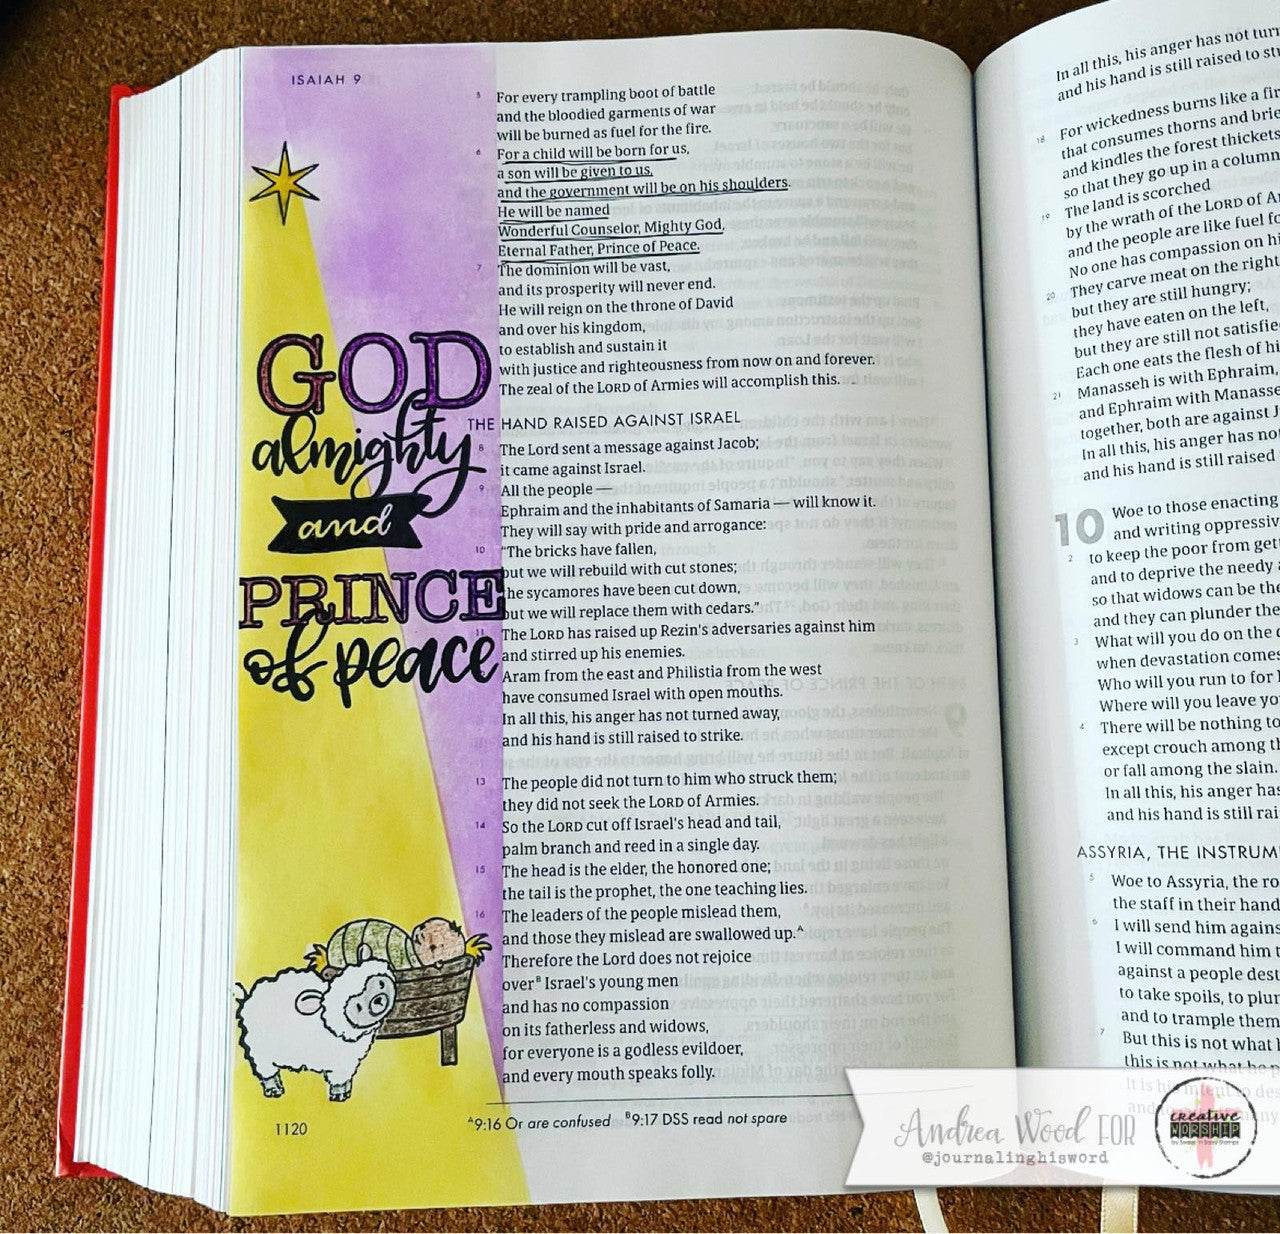 ISAIAH 9
GOD
almighty
and
PRINCE
of peace
5 For every trampling boot of battle
and the bloodied garments of war
will be burned as fuel for the fire.
6 For a child will be born for us,
a son will be given to us,
and the government will be on his shoulders.
He will be named
Wonderful Counselor, Mighty God,
Eternal Father, Prince of Peace.
7 The dominion will be vast,
and its prosperity will never end.
He will reign on the throne of David
and over his kingdom,
to establish and sustain it
with justice and righteousness from now on and forever.
The zeal of the LORD of Armies will accomplish this.
THE HAND RAISED AGAINST ISRAEL
8 The Lord sent a message against Jacob;
it came against Israel.
9 All the people —
Ephraim and the inhabitants of Samaria — will know it.
They will say with pride and arrogance:
10 "The bricks have fallen,
but we will rebuild with cut stones;
he sycamores have been cut down,
but we will replace them with cedars."
11 The LORD has raised up Rezin's adversaries against him
and stirred up his enemies.
Aram from the east and Philistia from the west
have consumed Israel with open mouths.
In all this, his anger has not turned away,
and his hand is still raised to strike.
13 The people did not turn to him who struck them;
they did not seek the LORD of Armies.
14 So the LORD cut off Israel's head and tail,
palm branch and reed in a single day.
15 The head is the elder, the honored one;
the tail is the prophet, the one teaching lies.
16 The leaders of the people mislead them,
and those they mislead are swallowed up.A
Therefore the Lord does not rejoice
overB Israel's young men
and has no compassion
on its fatherless and widows,
for everyone is a godless evildoer,
and every mouth speaks folly.
1120
A9:16 Or are confused B9:17 DSS read not spare
In all this, his anger has not turn
and his hand is still raised to st
18 For wickedness burns like a fir
that consumes thorns and brie
and kindles the forest thickets
so that they go up in a column
19 The land is scorched
by the wrath of the LORD of A
and the people are like fuel fo
No one has compassion on hi
20 They carve meat on the right
but they are still hungry;
they have eaten on the left,
but they are still not satisfie
Each one eats the flesh of hi
21 Manasseh is with Ephraim,
and Ephraim with Manasse
together, both are against J
In all this, his anger has no
and his hand is still raised
10 Woe to those enacting
and writing oppressiv
2 to keep the poor from gett
and to deprive the needy a
so that widows can be the
and they can plunder the
3 What will you do on the d
when devastation comes
Who will you run to for h
Where will you leave yo
4 There will be nothing to
except crouch among th
or fall among the slain.
In all this, his anger has
and his hand is still rai
ASSYRIA, THE INSTRUM
5 Woe to Assyria, the ro
the staff in their hand
6 I will send him agains
I will command him t
against a people dest
to take spoils, to plur
and to trample them
7 But this is not what h
this is not what he p
Andrea Wood FOR
@journalinghisword
creative
WORSHIP